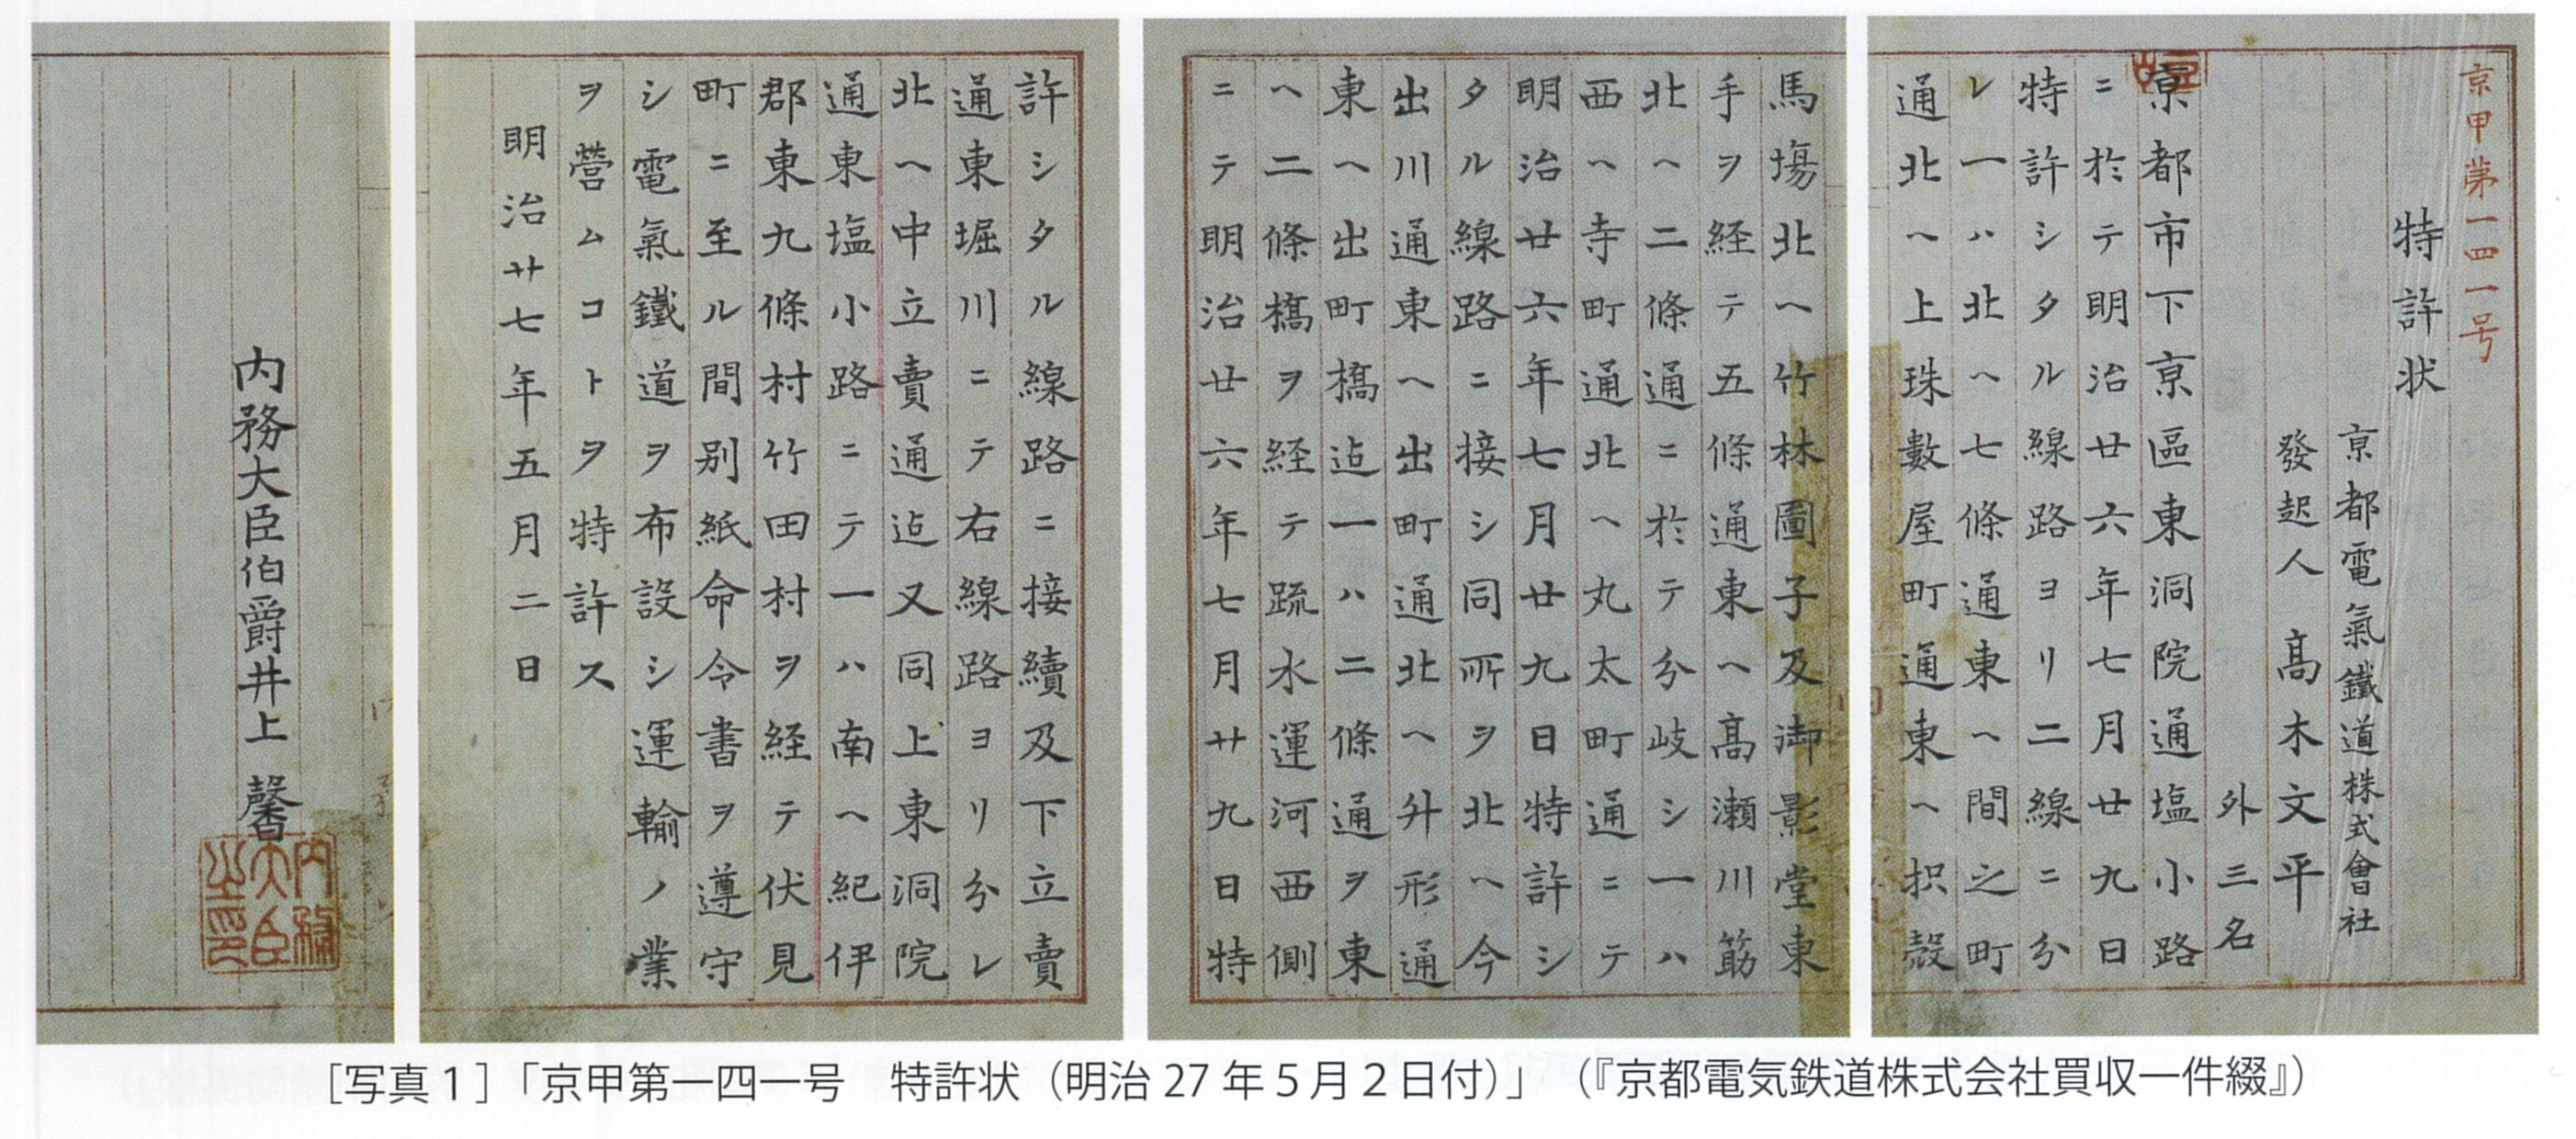 京甲第一四一号
特許状
京都電氣鐵道株式會社
發起人髙木文平
外三名
京都市下京區東洞院通塩小路
ニ於テ明治廿六年七月廿九日
特許シタル線路ヨリ二線ニ分
レ一ハ北ヘ七條通東ヘ間之町
通北ヘ上珠數屋町通東ヘ枳殻
馬塲北ヘ竹林圖子及御影堂東
手ヲ経テ五條通東ヘ髙瀬川筋
北ヘ二條通ニ於テ分岐シ一ハ
西ヘ寺町通北ヘ丸太町通ニテ
明治廿六年七月廿九日特許シ
タル線路ニ接シ同所ヲ北ヘ今
出川通東ヘ出町通北ヘ升形通
東ヘ出町橋迠一ハ二條通ヲ東
ヘ二條橋ヲ経テ疏水運河西側
ニテ明治廿六年七月廿九日特
許シタル線路ニ接續及下立賣
通東堀川ニテ右線路ヨリ分レ
北ヘ中立賣通迠又同上東洞院
通東塩小路ニテ一ハ南ヘ紀伊
郡東九條村竹田村ヲ経テ伏見
町ニ至ル間別紙命令書ヲ遵守
シ電氣鐵道ヲ布設シ運輸ノ業
ヲ營ムコトヲ特許ス
明治廿七年五月二日
内務大臣伯爵井上馨
内務大臣之印
［写真１］「京甲第一四一号　特許状（明治 27 年 5 月 2 日付）」（『京都電気鉄道株式会社買収一件綴』）